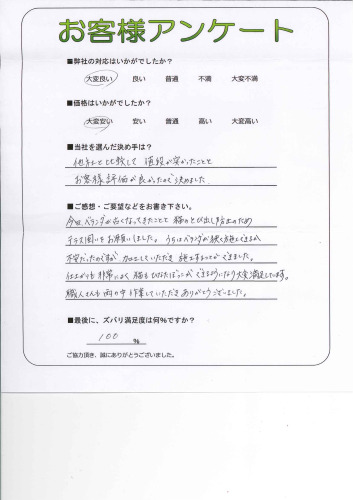 お客様アンケート
■弊社の対応はいかがでしたか?
大変良い 良い 普通 不満 大変不満
■価格はいかがでしたか?
大変安い 安い 普通 高い 大変高い
■当社を選んだ決め手は?
他社と比較して 値段が安かったことと
お客様評価が良かったので決めました
■ご感想・ご要望などをお書き下さい。
今回、ベランダが古くなってきたことと 猫のとび出し防止のため
テラス囲いをお願いしました。うちはベランダが狭く施工できるか
不安だったのですが 加工していただき 施工することができました。
仕上がりも非常によく 猫もひなたぼっこができるようになり大変満足しています。
職人さんも雨の中作業していただきありがとうございました。
■最後に、ズバリ満足度は何%ですか?
100 %
ご協力頂き、誠にありがとうございました。